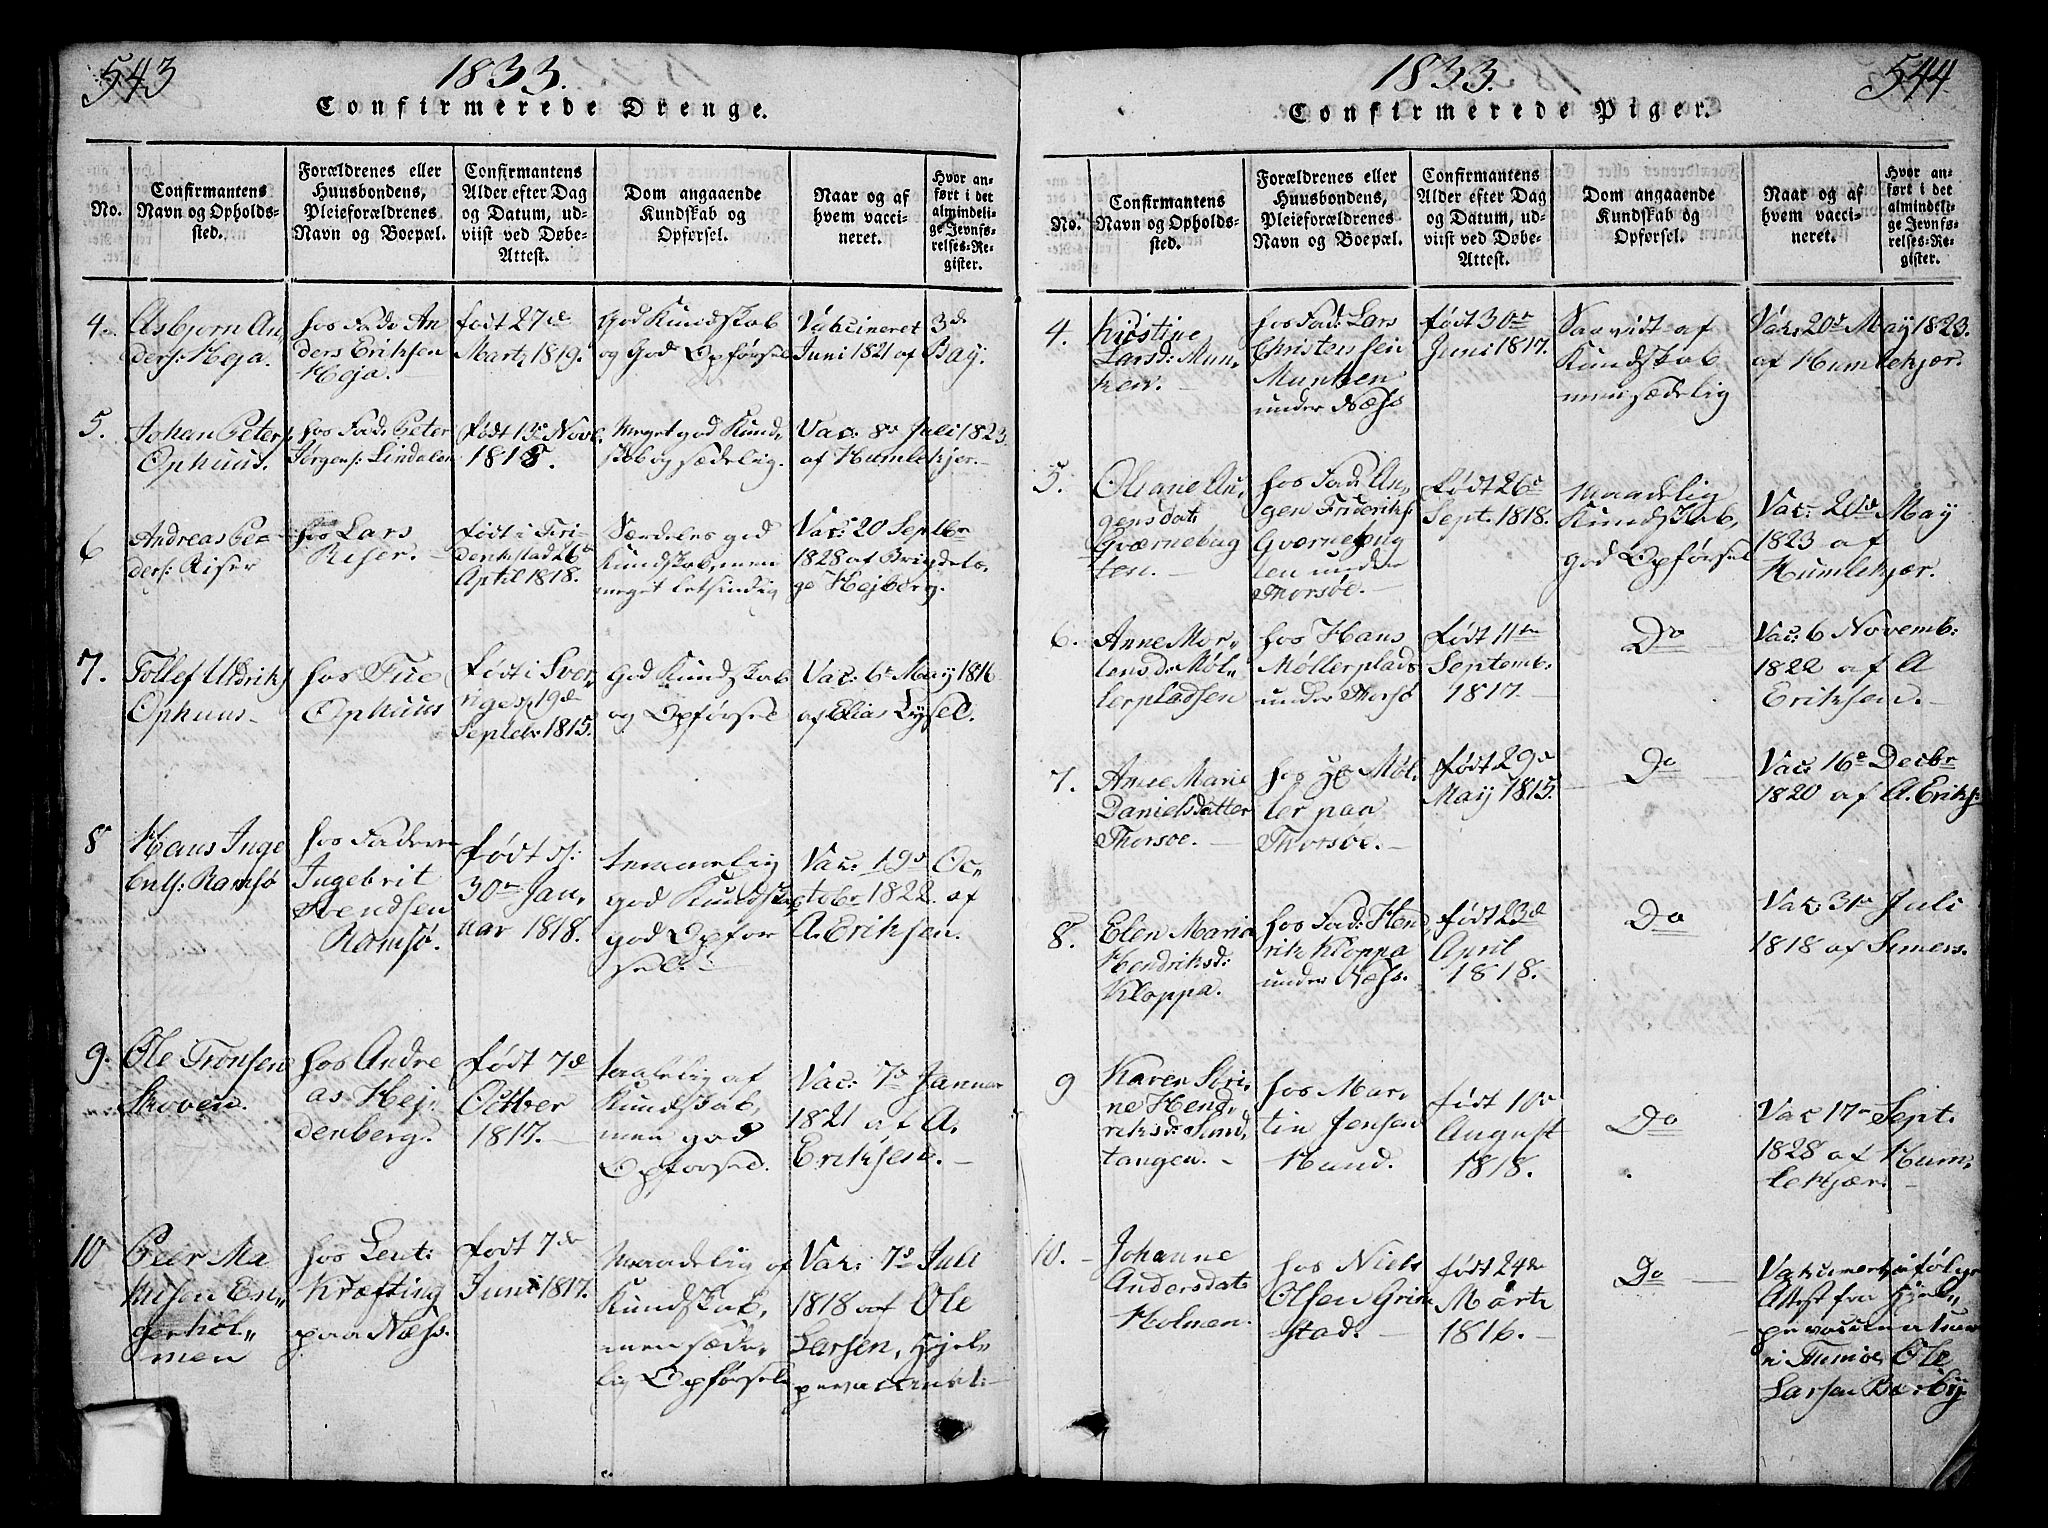 543
1833.
Confirmerede Drenge.
No.
Confirmantens
Navn og Opholds-
sted.
Forældrenes eller
Huusbondens,
Pleieforældrenes
Navn og Boepæl.
Confirmantens
Alder efter Dag
og Datum, ud-
viist ved Døbe-
Attest.
Dom angaaende
Kundskab og
Opførsel.
Naar og af
hvem vacci-
neret.
Hvor an-
ført i det
almindeli-
ge Jevnfø-
relses-Re-
gister.
4.
Asbjørn An
ders: Heja.
hos Fad: An
ders Eriksen
Heja.
født 27de
Martz 1819.
God Kundskab
og God Opførsel
Vakcineret 3d:
Juni 1821 af Bay.
5.
Johan Peters.
Ophuus.
hos Fad: Peter
Jørgens: Lindalen
født 13de Novb.
1818.
Meget god Kund,
skab og sædelig.
Vac: 8de Juli 1823
af Humlekjær.
6
Andreas Pe=
ders: Riser
hos Lars
Riser.
født i Fri-
derikstad 26de
April 1818.
Særdeles god
Kundskab, men
meget letsindig
Vac: 20 Septbr
1828 af Brigdelæ-
ge Hejberg.
7.
Tollef Uldriks
Ophuus
hos Tue
Ophuus
født i Sver-
rige 19de
Septebr 1815.
God Kundskab
og Opførsel
Vac: 6te May 1816
af Elias Lysel.
8
Hans Inge
brits: Ramsø
hos Faderen
Ingebrit
Svendsen
Ramsø.
født
30te Jan,
uar 1818.
temmelig
god Kundskab,
god Opfør
sel.
Vac: 19de Oc-
tobr 1822 af
A. Eriksen.
9.
Ole Tronsen
Skoven.
hos Andre
as Hej-
denberg.
født 7de
Octber
1817.
taalelig af
Kundskab,
men god
Opførsel.
Vac: 7de Januar
1821 af A.
Eriksen.
10
Peer Ma
thisen En-
gerhol-
men
hos Leut:
Kræfting
paa Næss.
født 7de
Juni 1817.
Maadelig af
Kundskab,
men sæde-
lig Opførsel
Vac: 7de Juli
1818 af Ole
Larsen, Hjel-
pevaccinat:
1833.
544
Confirmerede Piger.
No.
Confirmantens
Navn og Opholds-
sted.
Forældrenes eller
Huusbondens,
Pleieforældrenes
Navn og Boepæl.
Confirmantens
Alder efter Dag
og Datum, ud-
viist ved Døbe-
Attest.
Dom angaaende
Kundskab og
Opførsel.
Naar og af
hvem vacci-
neret.
Hvor an-
ført i det
almindelig-
ge Jevnfø-
relses-Re-
gister.
4.
Kristine
Larsd: Mun-
ken.
hos Fad: Lars
Christensen
Munken
under Næss
født 30te
Juni 1817.
Saavidt af
Kundskab
men sædelig
Vac: 20de May 1823.
af Humlekjær.
5.
Oleane Au,
gensdat:
Gværnebug
ten.
hos Fad: Au,
gen Friderihs:
Gværnebug
ten under
Thorsøe.
født 26de
Sept. 1818.
maadelig
Kundskab,
god Opførsel
Vac: 20de May
1823 af
Humlekjær.
6.
Anne Mor-
tensd: Møl-
lerpladsen
hos Hans
Møllerplads
under Thorsø
født 11te
Septemb.
1817.
Do
Vac: 6 Novemb:
1822 af A
Eriksen.
7.
Anne Marie
Danielsdatter
Thorsøe.
hos Hr Møl-
ler paa
Thorsøe.
født 29de
May 1815.
Do
Vac: 16de Decbr
1820 af A. Eriks:
8.
Elen Maria
Hendriksd:
Kloppa.
hos Fad: Hen
rik Kloppa
under Næss.
født 23de
April
1818.
Do
Vac 31te Juli
1818 af Simers.
9
Karen Sri-
ne Hend,
riksd: Sund,
tangen.
hos Mar-
tin Jensen
Hund.
født 10de
August
1818.
Do
Vac 17de Sept.
1828 af Hum-
lekjær.
10.
Johanne
Andersdat:
Holmen.
hos Niels
Olsen Grim
stad.
født 24de
Marts
1816.
Do
Attest fra Hjel-
Ole
Larsen